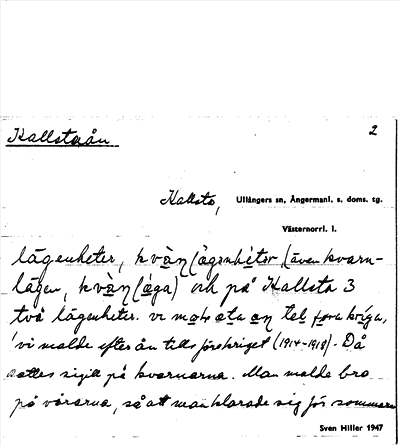 Hallstaån 2
Hallsta, Ullångers sn, Ångermanl. s. doms. tg.
Västernorrl. l.
lägenheter, kvàṇlägenhéter (även kvarn-
lägen, kvàṇlága) och på Hallsta 3
två lägenheter. vi
'vi malde efter ån till förkriget (1914-1918). Då
sattes sigill på kvarnarna. Man malde bra
på vårarna, så att man klarade sig för sommaren
Sven Hiller 1947